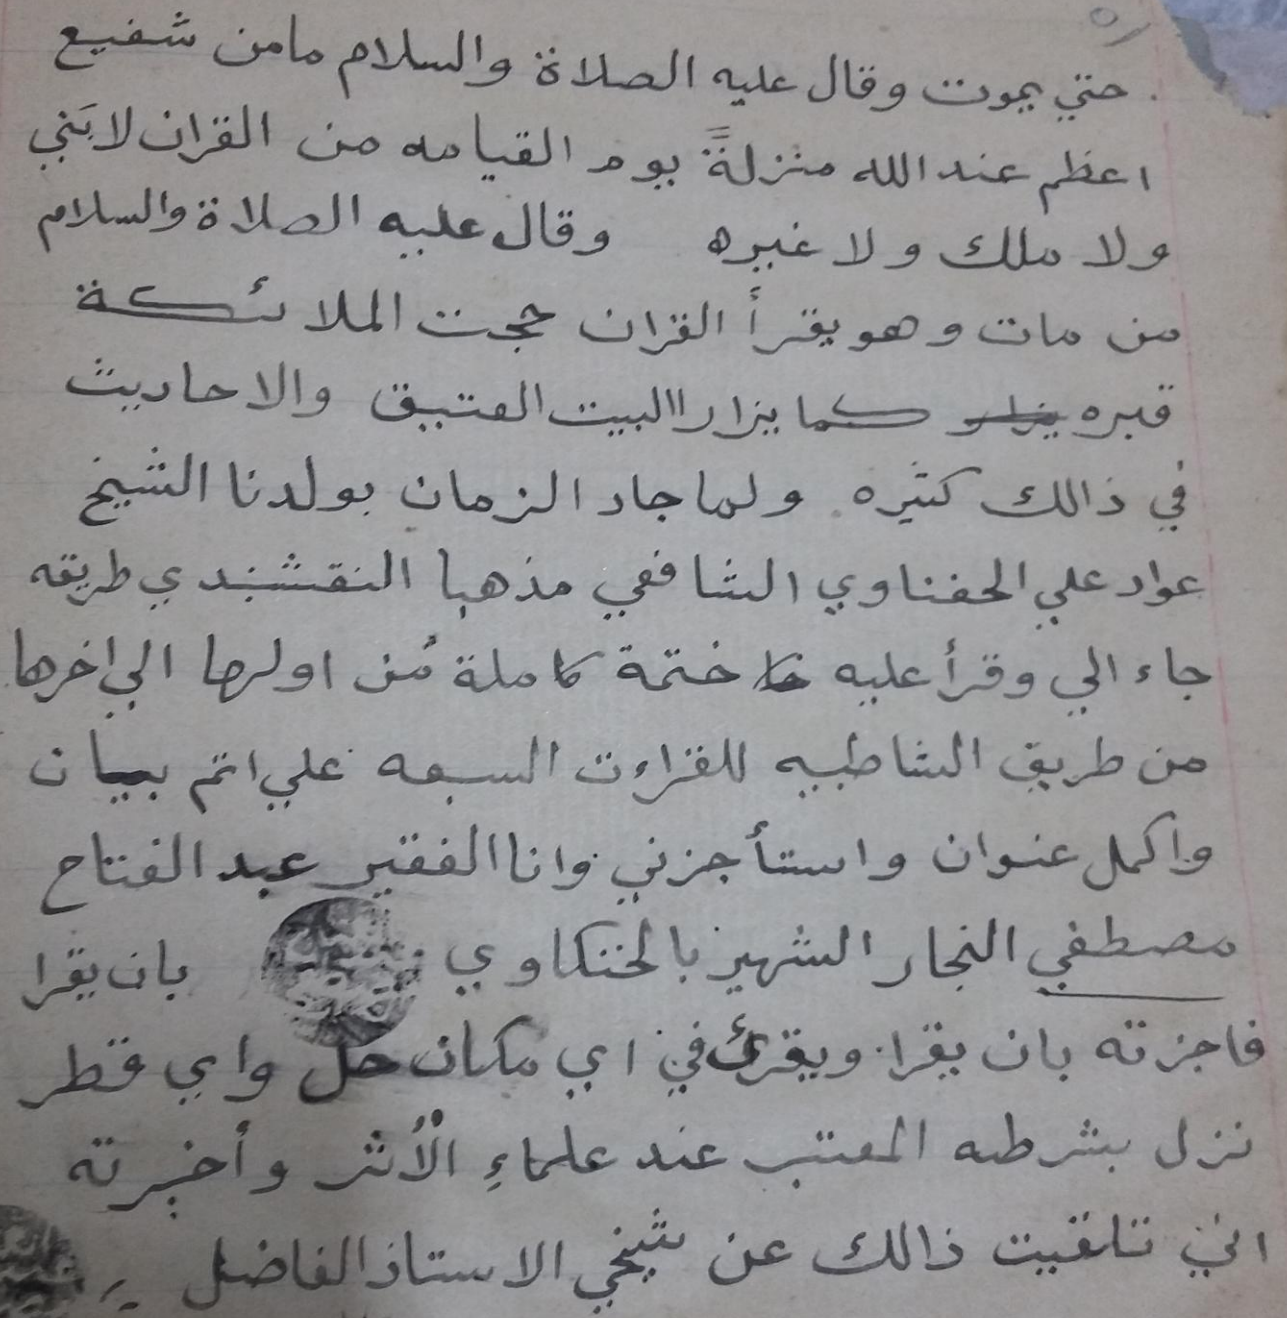 ٥١
حتي يموت وقال عليه الصلاة والسلام مامن شفيع
اعظم عند الله منزلةً يوم القيامه من القران لا نبي
ولا ملك ولا غيره وقال عليه الصلاة والسلام
من مات وهو يقرأ القران حجت الملائكة
قبره كما يزار االبيت العتيق والاحاديث
في ذالك كثيره ولما جاد الزمان بولدنا الشيخ
عواد علي الحفناوي الشافعي مذهبا النقشبندي طريقه
جاء الي وقرأ عليه ختمة كاملة من اولها الي اخرها
من طريق الشاطبيه للقراءت السبعه علي اتم بيان
واكمل عنوان واستأجزني وانا الفقير عبد الفتاح
مصطفي النجار الشهير بالخنكاوي بان يقرا
فاجزته بان يقرا ويقرئ في اي مكان حل واي قطر
نزل بشرطه المعتبر عند علماءِ الأثر وأخبرته
اني تلقيت ذالك عن شيخي الاستاذ الفاضل